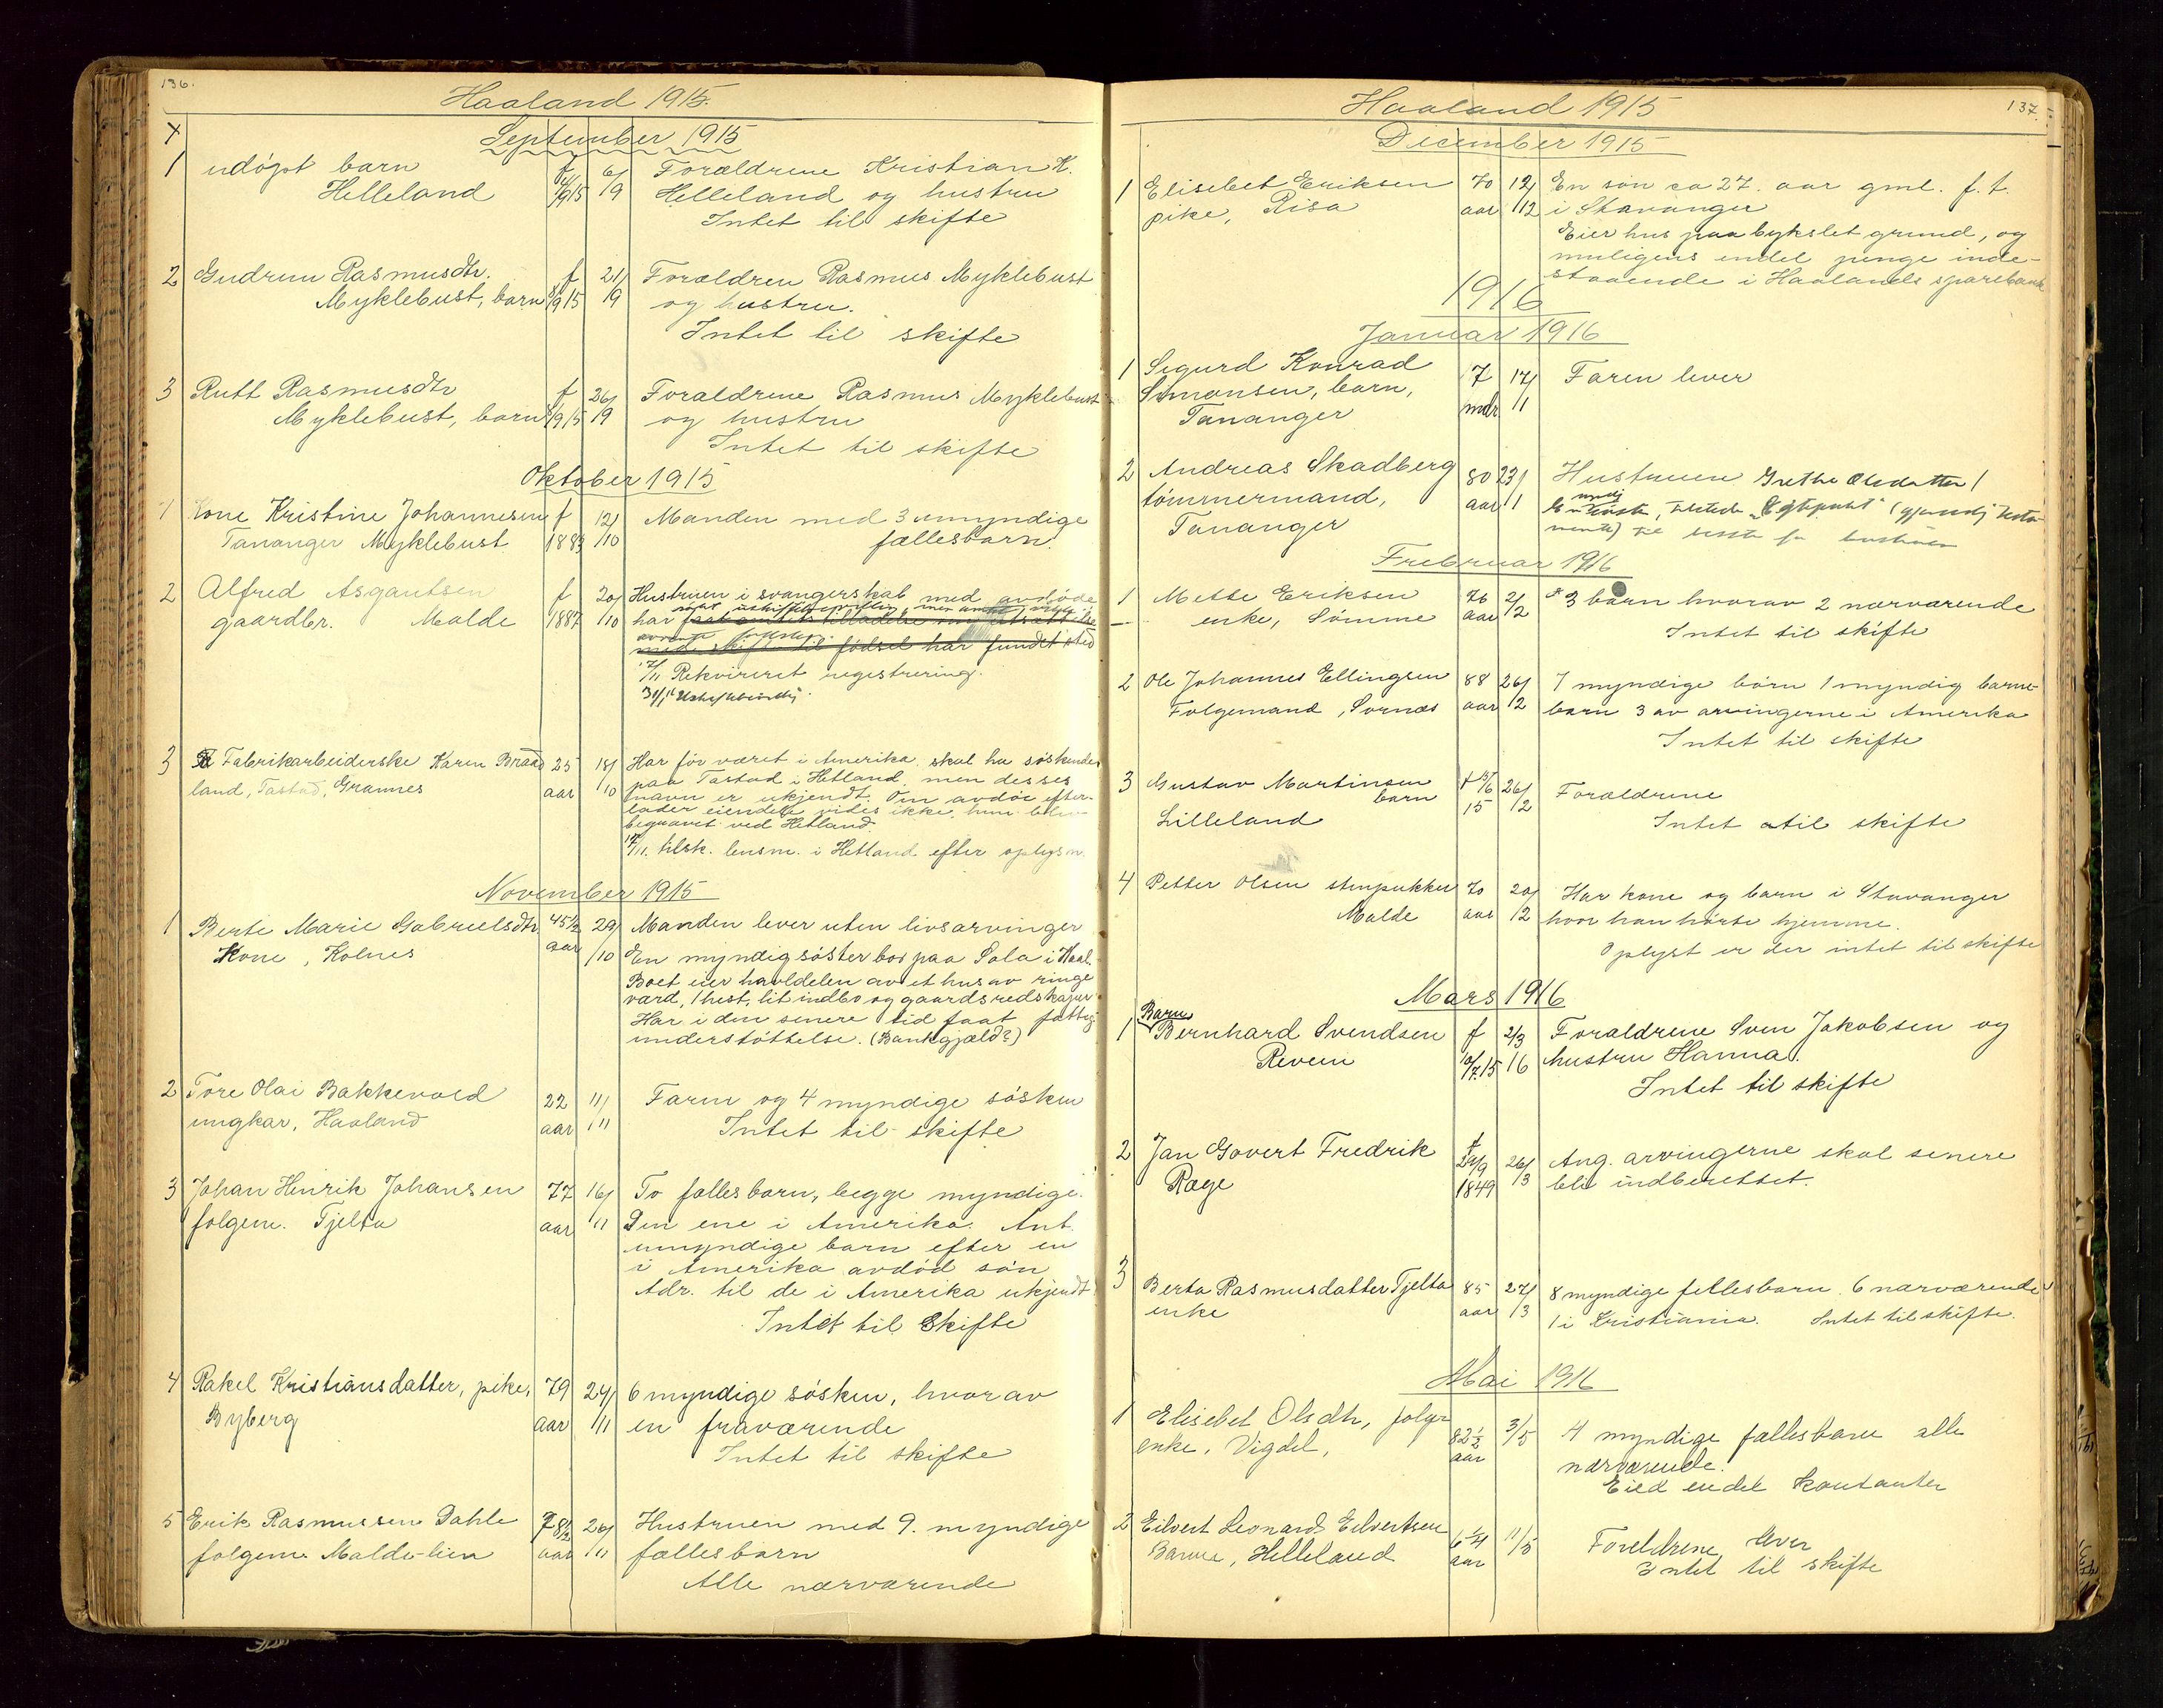 136.
Haaland 1915.
September 1915
1 udøpt barn f 6/ Forældrene Kristian K.
Helleland 4/9 15 19 Helleland og hustru
Intet til skifte
2 Gudrun Rasmusdtr. f 21/ Forældren Rasmus Myklebust
Myklebust, barn 8/9 15 19 og hustru.
Intet til skifte
3 Rutt Rasmusdtr f 26/ Forældrene Rasmus Myklebust
Myklebust, barn 8/9 15 19 og hustru
Intet til skifte
Oktober 1915
1 Kone Kristine Johannesen f 12/ Manden med 3 umyndige
Tananger Myklebust 1883 /10 fællesbarn.
2 Alfred Asgautsen f 20/ Hustruen i svangerskab med avdøde
gaardbr. Malde 1887 /10 har
fødsel har fundet sted
17/11 Rekvireret registrering.
31/1
3 Fabrikarbeiderske Karen Braad 25 18/ Har før været i Amerika, skal ha søskende
land, Tastad, Grannes aar /10 paa Tastad i Hetland, men desses
navn er ukjendt. Om avdøe efter-
lader eiendele vites ikke, hun blev
begravet ved Hetland.
17/11. tilsk. lensm. i Hetland efter oplysn.
November 1915
1 Berte Marie Gabrielsdtr 45½ 29/ Manden lever uten livsarvinger
Kone, Kolnes aar /10 En myndig søster bor paa Sola i Haal.
Boet eier havldelen av et hus av ringe
værd, 1 hest, lit indbo og gaardsredskaper
Har i den senere tid faat fattig
understøttelse. (Bankgjæld?)
2 Tore Olai Bakkevold 22 11/ Faren og 4 myndige søsken
ungkar, Haaland aar /11 Intet til skifte
3 Johan Henrik Johansen 77 16/ To fællesbarn, begge myndige.
folgem. Tjelta aar /11 Den ene i Amerika. Ant.
umyndige barn efter en
i Amerika avdød søn
Adr. til de i Amerika ukjendt
Intet til Skifte
4 Rakel Kristiansdatter, pike, 79 24/ 6 myndige søsken, hvorav
Byberg aar /11 en fraværende
Intet til skifte
5 Erik Rasmussen Dahle 78½ 26/ Hustruen med 9. myndige
folgem. Malde-lien aar /11 fællesbarn
Alle nærværende
137.
Haaland 1915
December 1915
1 Elisebet Eriksen 70 12/ En søn ca 27. aar gml. f. t.
pike, Risa aar /12 i Stavanger
Eier hus paa bykslet grund, og
muligens endel penge inde-
staaende i Haalands sparebank
1916
Januar 1916
1 Sigurd Konrad 7 17/ Faren lever
Simonsen, barn, mdr /1
Tananger
2 Andreas Skadberg 80 23/ Hustruen Grethe Olsdatter
tømmermand, aar /1
Tananger
Frebruar 1916
1 Mette Eriksen 76 2/ 3 barn hvorav 2 nærværende
enke, Sømme aar /2 Intet til skifte
2 Ole Johannes Ellingsen 88 26/ 7 myndige børn 1 myndig barne-
Folgemand, Sørnæs aar /2 barn 3 av arvingerne i Amerika
Intet til skifte
3 Gustav Martinsen f 13/6 26/ Forældrene
barn 15 /2
Lilleland Intet til skifte
4 Petter Olsen stenpukker 70 20/ Har kone og barn i Stavanger
Malde aar /2 hvor han hørte hjemme.
Oplyst er der intet til skifte
Mars 1916
Barn
1 Bernhard Svendsen f 2/3 Forældrene Sven Jakobsen og
Reveim 10/7.15 16 hustru Hanna.
Intet til skifte
2 Jan Govert Fredrik f 29/9 26/ Ang. arvingerne skal senere
Ræge 1849 /3 bli indberettet.
3 Berta Rasmusdatter Tjelta 85 27/ 8 myndige fellesbarn 6 nærværende
enke aar /3 1 i Kristiania. Intet til skifte.
Mai 1916
1 Elisebet Olsdtr, folge 82½ 3/5 4 myndige fællesbarn alle
enke, Vigdel, aar nærværende.
Eied endel kontanter
2 Eilvert Leonard Eilvertsen 6¼ 11/5 Foreldrene lever
Barne, Helleland aar Intet til skifte